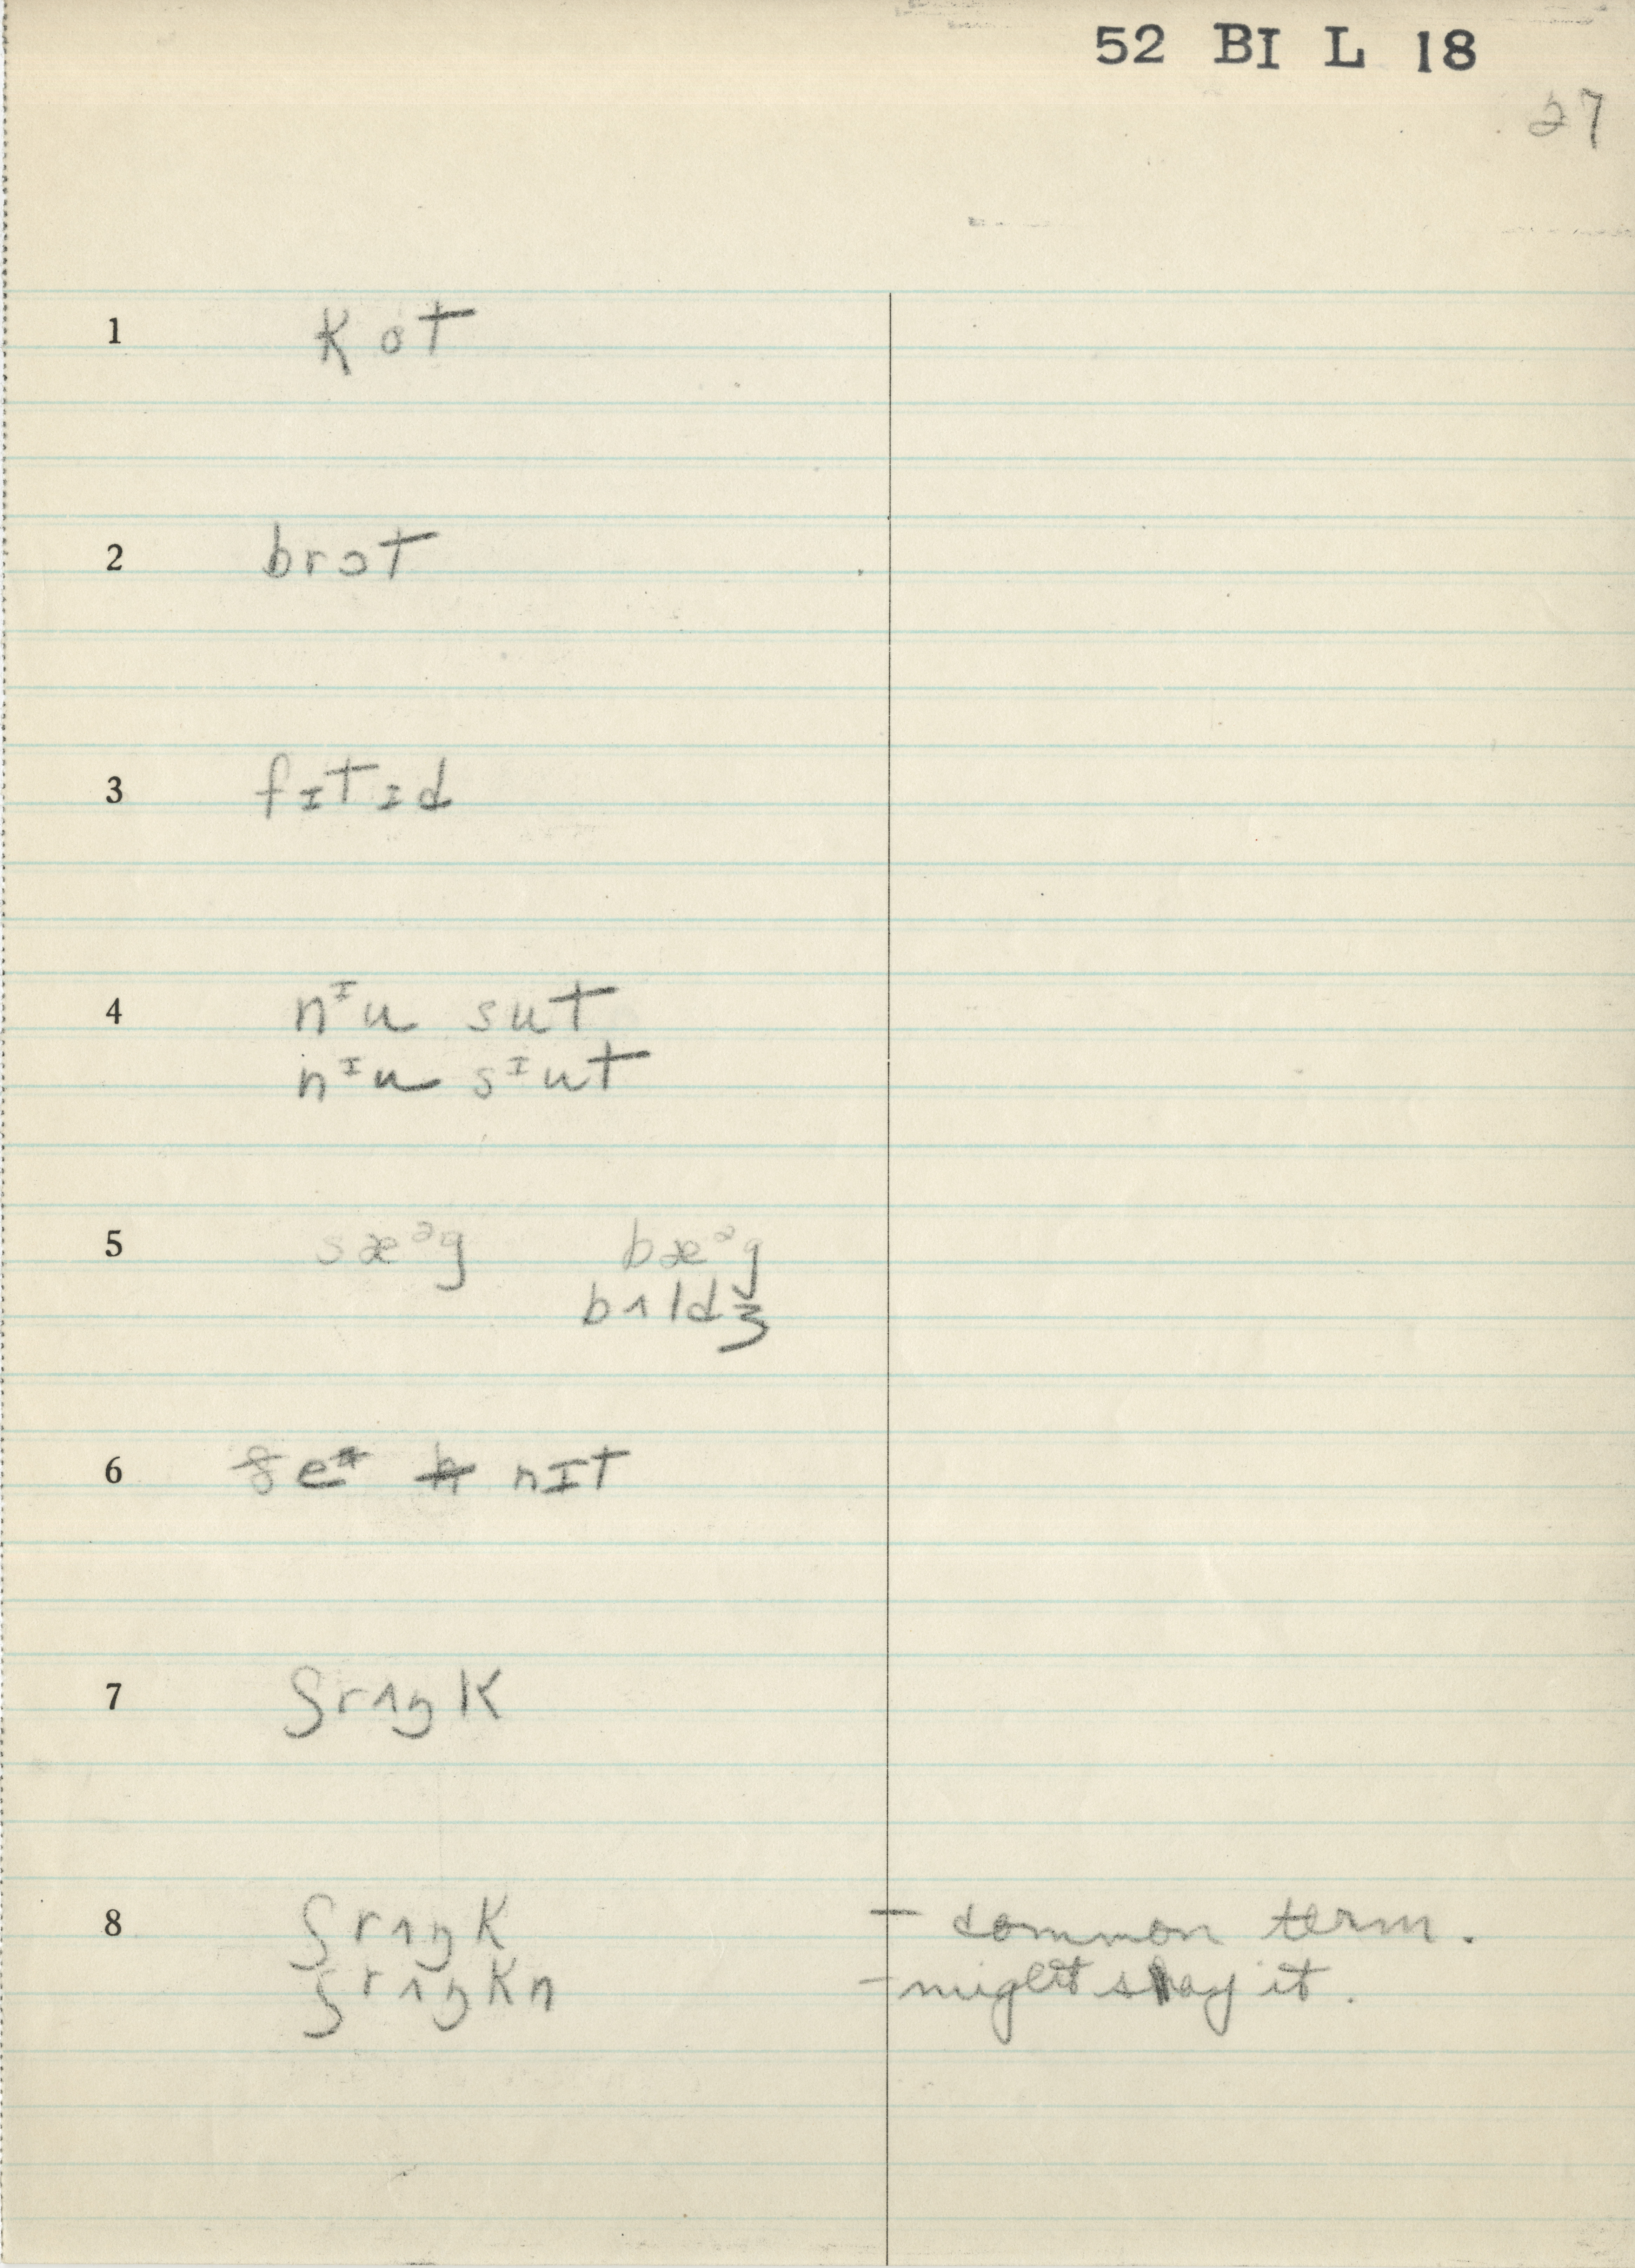 52 BI L 18
27
1 kot
2 brɔt
3 fɪtɪd
4 nᴵu sut
nᴵu sᴵut
5 sæᵊg bæᵊg
bʌldʒ
6 nɪt
7 ʃrʌŋk
8 ʃrʌŋk – common term.
ʃrʌŋkn – might say it.